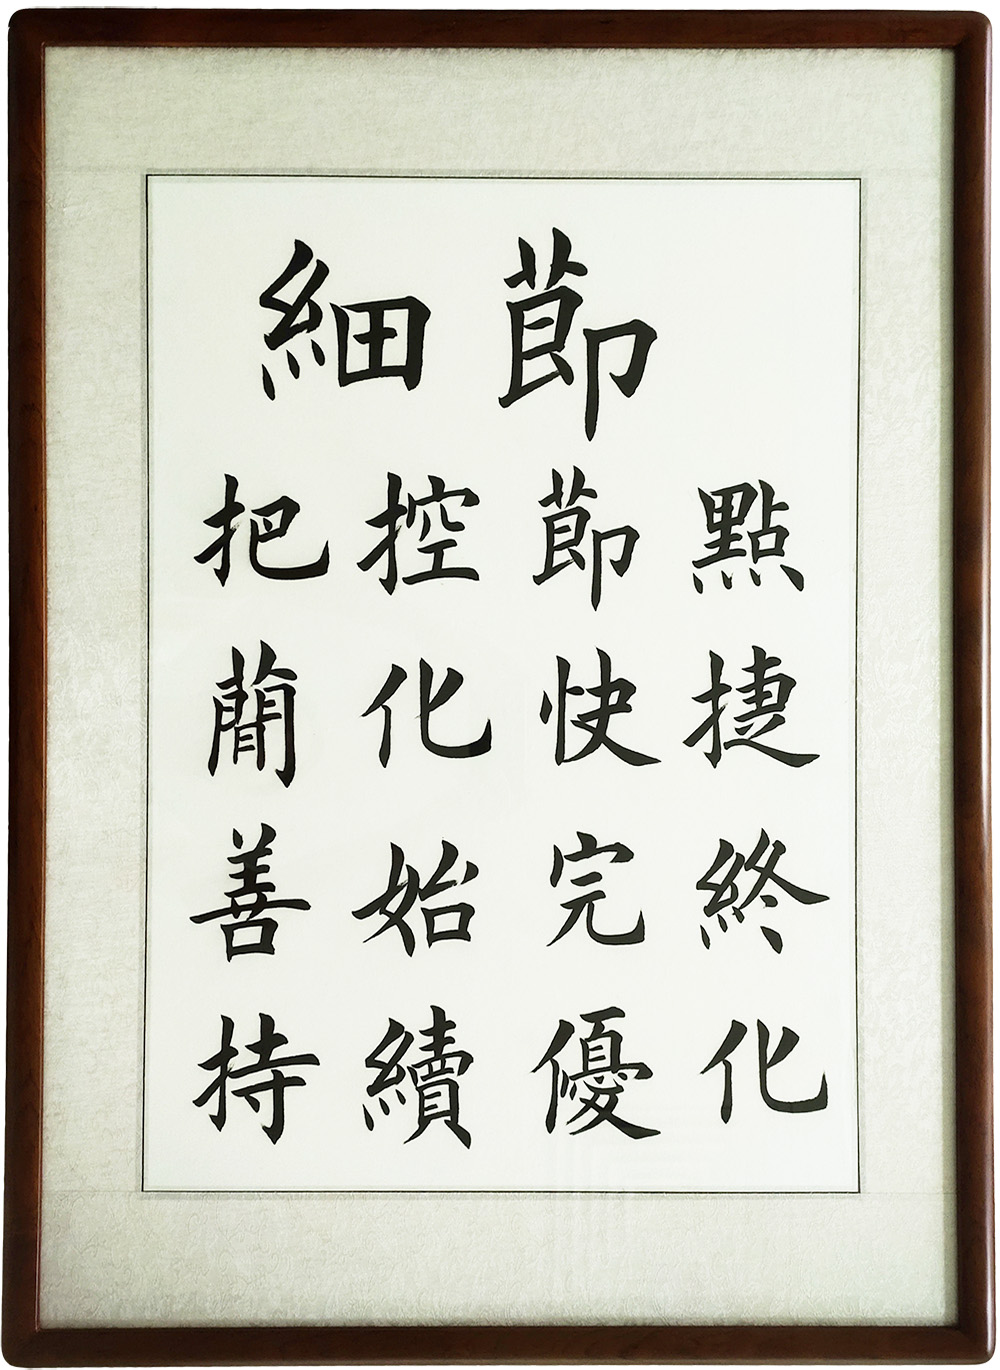 細節
把控節點
簡化快捷
善始完終
持續優化